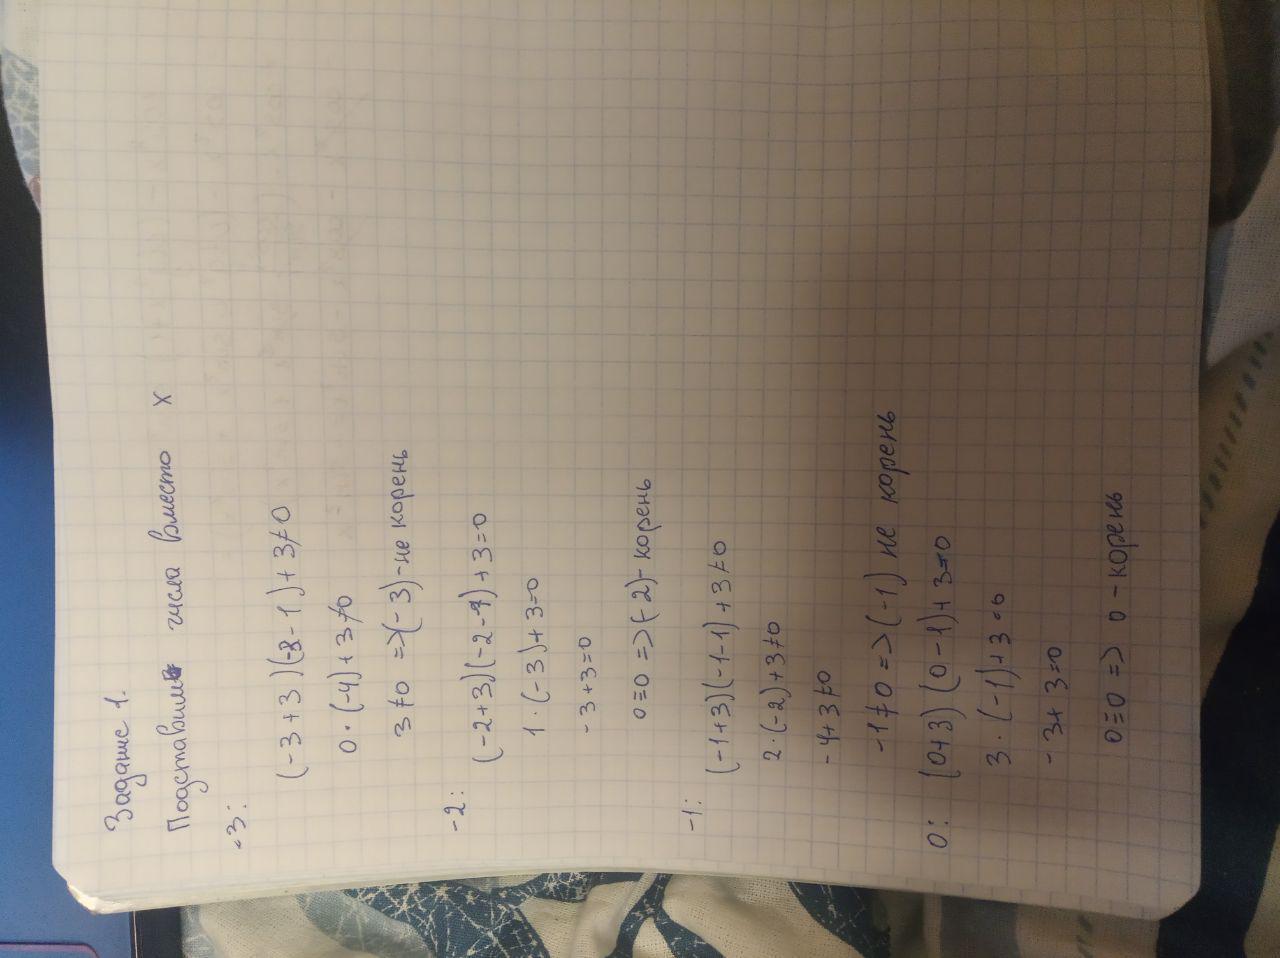 Задание 1.
Подставим числа вместо x
-3: (-3+3)(-3-1)+3≠0
0·(-4)+3≠0
3≠0 =>(-3)-не корень
-2: (-2+3)(-2-1)+3=0
1·(-3)+3=0
-3+3=0
0=0 =>(-2)-корень
-1: (-1+3)(-1-1)+3≠0
2·(-2)+3≠0
-4+3≠0
-1≠0 => (-1) не корень
0: (0+3)(0-1)+3=0
3·(-1)+3=0
-3+3=0
0=0 => 0-корень